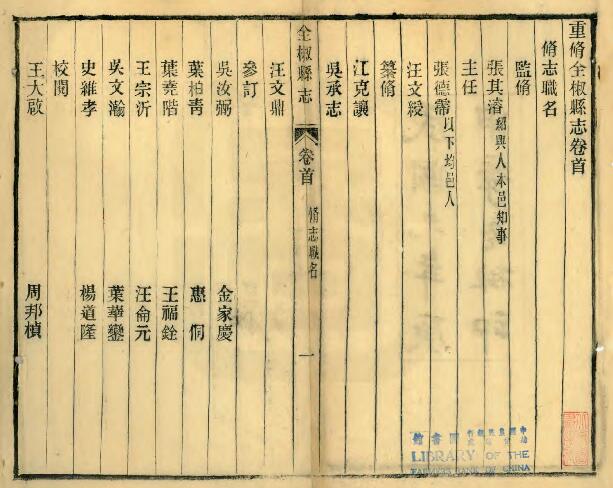 重脩全椒縣志卷首
脩志職名
監脩
張其濬紹興人本邑知事
主任
張德霈以下均邑人
汪文綬
纂脩
江克讓
吳承志
全椒縣志 卷首 脩志職名 一
汪文鼎
參訂
吳汝弼 金家慶
葉柏靑 惠侗
葉堯階 王福銓
王宗沂 汪侖元
吳文瀚 葉華鑾
史維孝 楊道隆
校閱
王大啟 周邦楨
圖書館
LIBRARY OF THE
CHINA